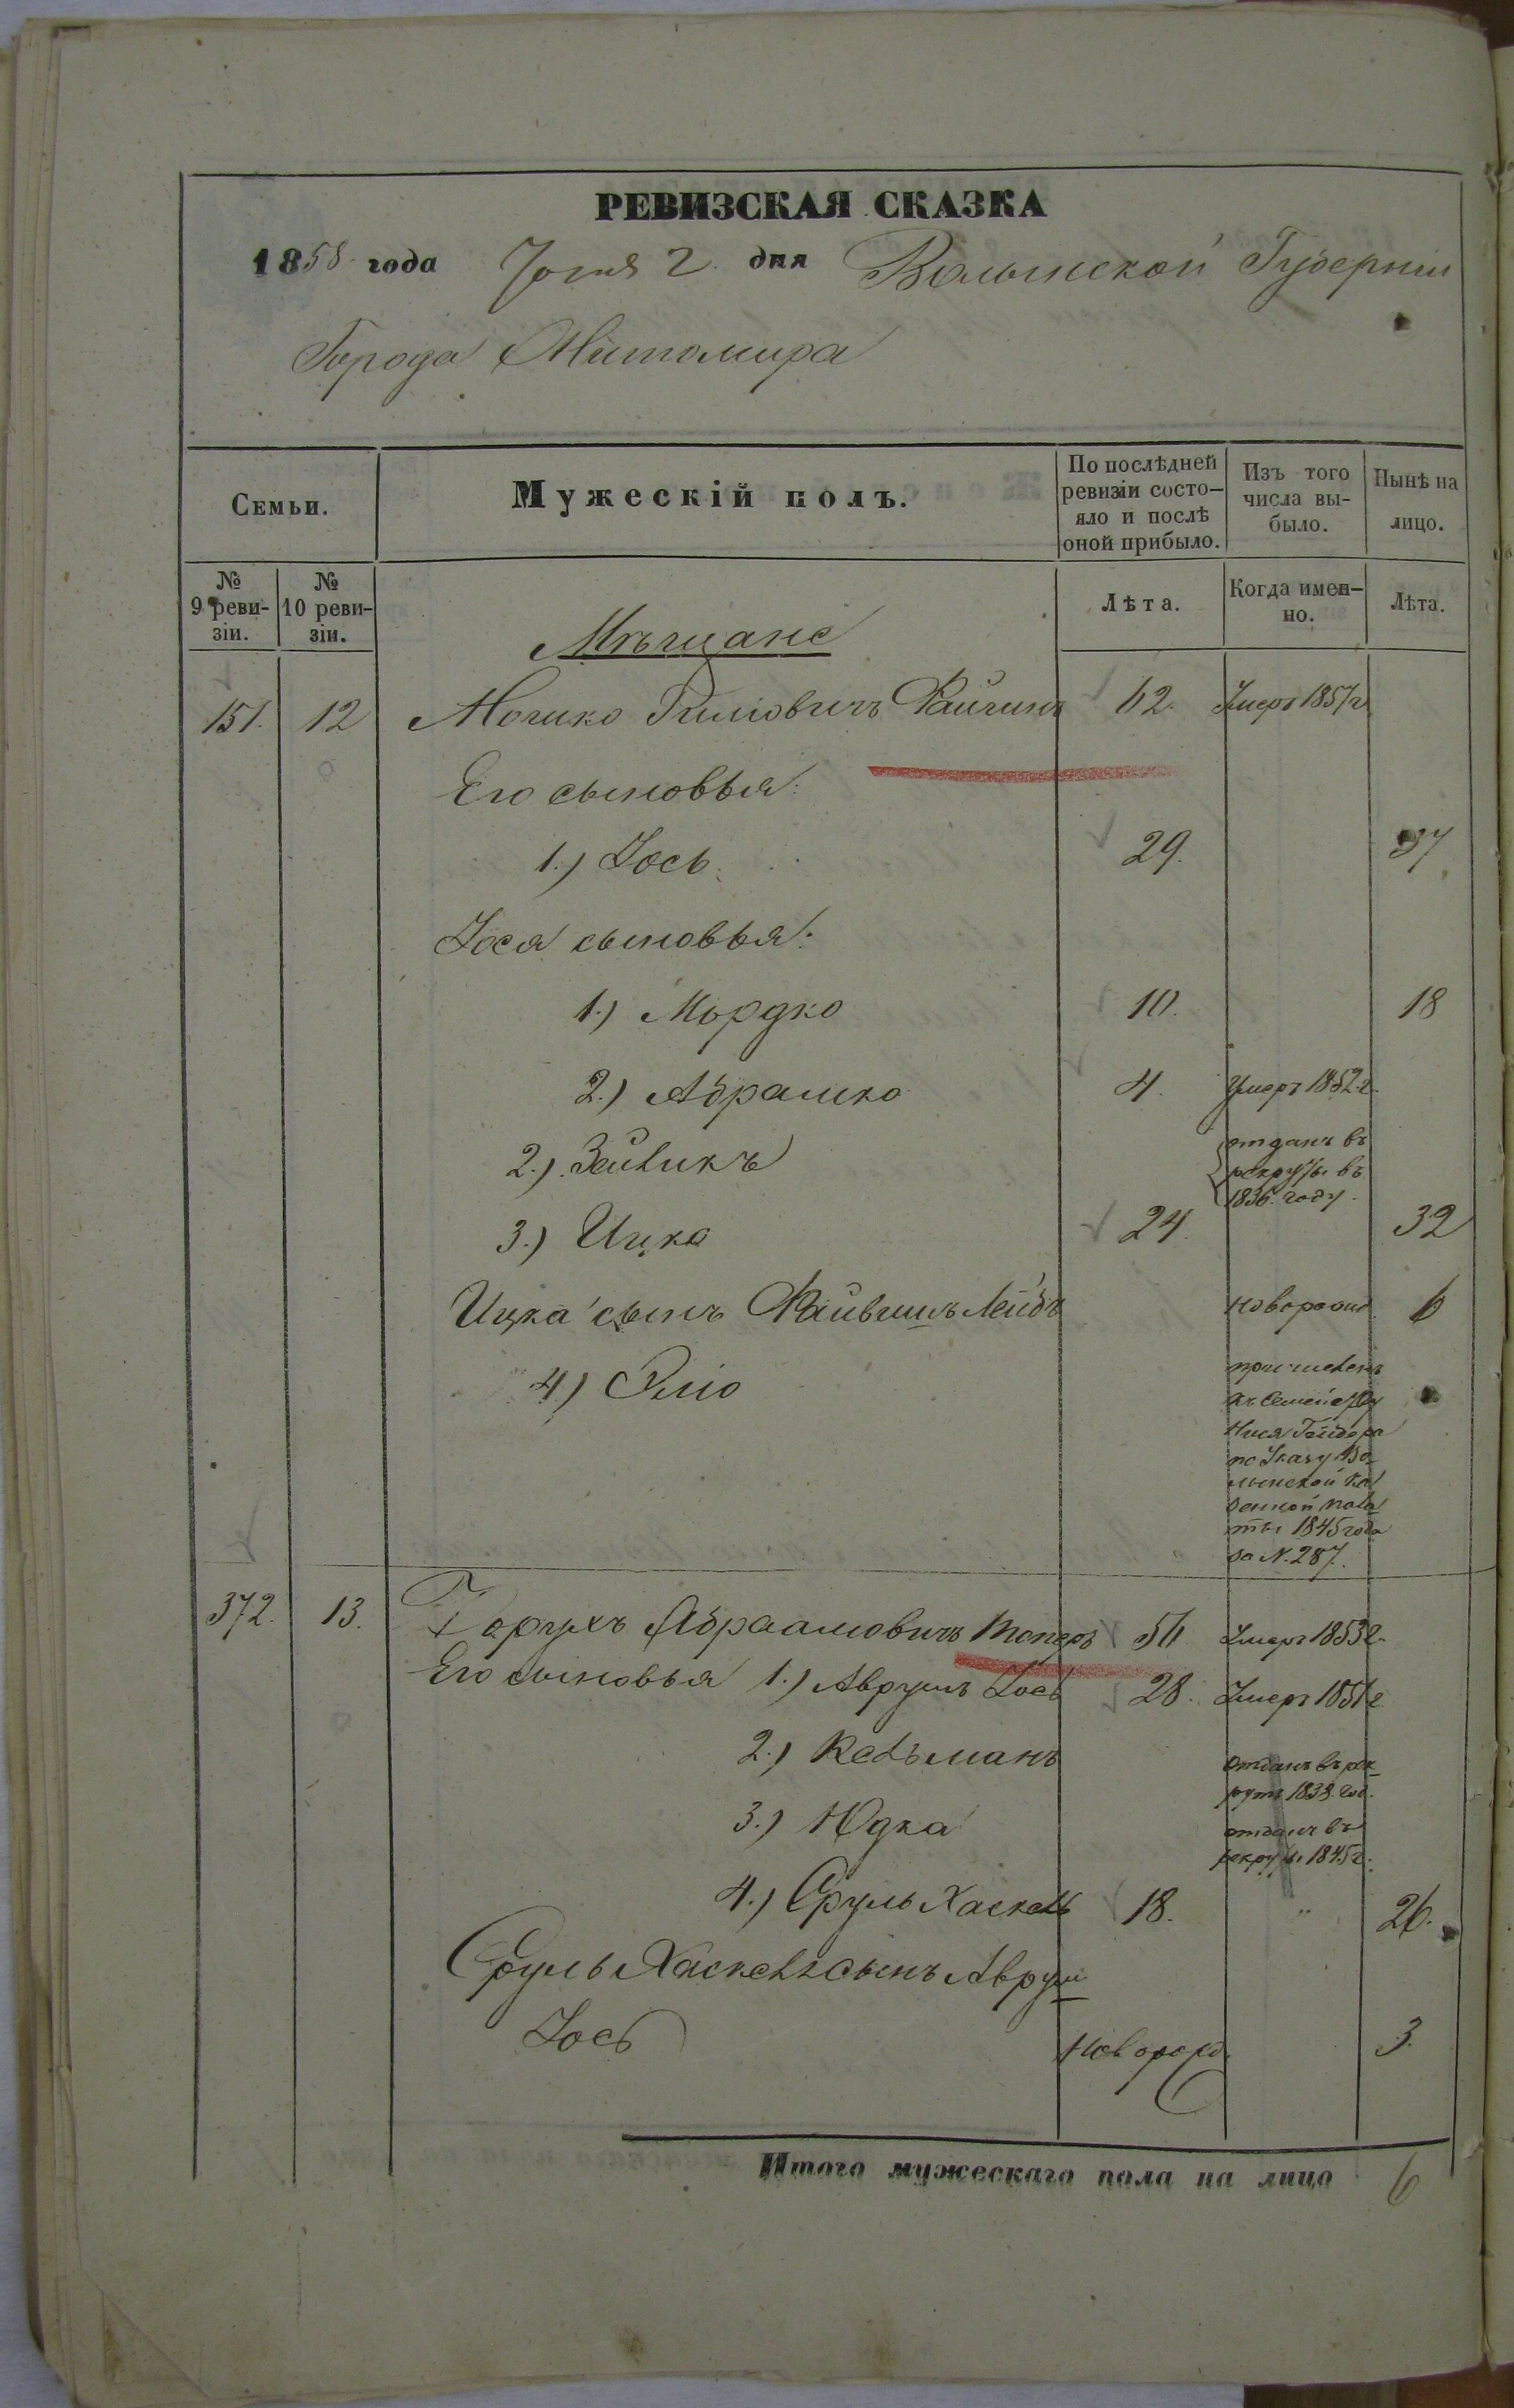 РЕВИЗСКАЯ СКАЗКА
1858 года Іюня 2 дня Волынской Губерніи
Города Житомира
Семьи.
Мужескій полъ.
По послѣдней ревизіи состо-
яло и послѣ
оной прибыло.
Изъ того
числа вы-
было.
Нынѣ на
лицо.
№
9 реви-
зіи.
№
10 реви-
зіи.
Лѣта.
Когда имен-
но.
Лѣта.
Мѣщане
151. 12 Мошко Файтинъ 62. Умеръ 1857г
Его сыновья:
1.) Іось 29. 37
Іося сыновья:
1.) Мордко 10. 18
2.) Абрамко 4. Умеръ 1852 г.
2.) Зейликъ отданъ въ
рекруты въ
1836 году.
3.) Ицка 24. 32
Ицка сынъ Файвишъ Лейбъ Новорожд. 6
4) Эліо причисленъ
къ семейству
по Указу Во-
лынской Ка
зенной пала
ты 1845 года
за N. 287.
372. 13. Борухъ Абраамовичъ Топеръ 56 Умеръ 1853 г.
Его сыновья 1.) Аврумъ Іось 28. Умеръ 1851 г.
2.) Кельманъ отданъ въ рек
руты 1838 год.
3.) Юдка отданъ въ
рекруты 1845 г.
4.) Сруль Хаскель 18. " 26.
Сруль Хаскель сынъ Аврум
Іось Новорожд. 3.
Итого мужескаго пола на лицо 6